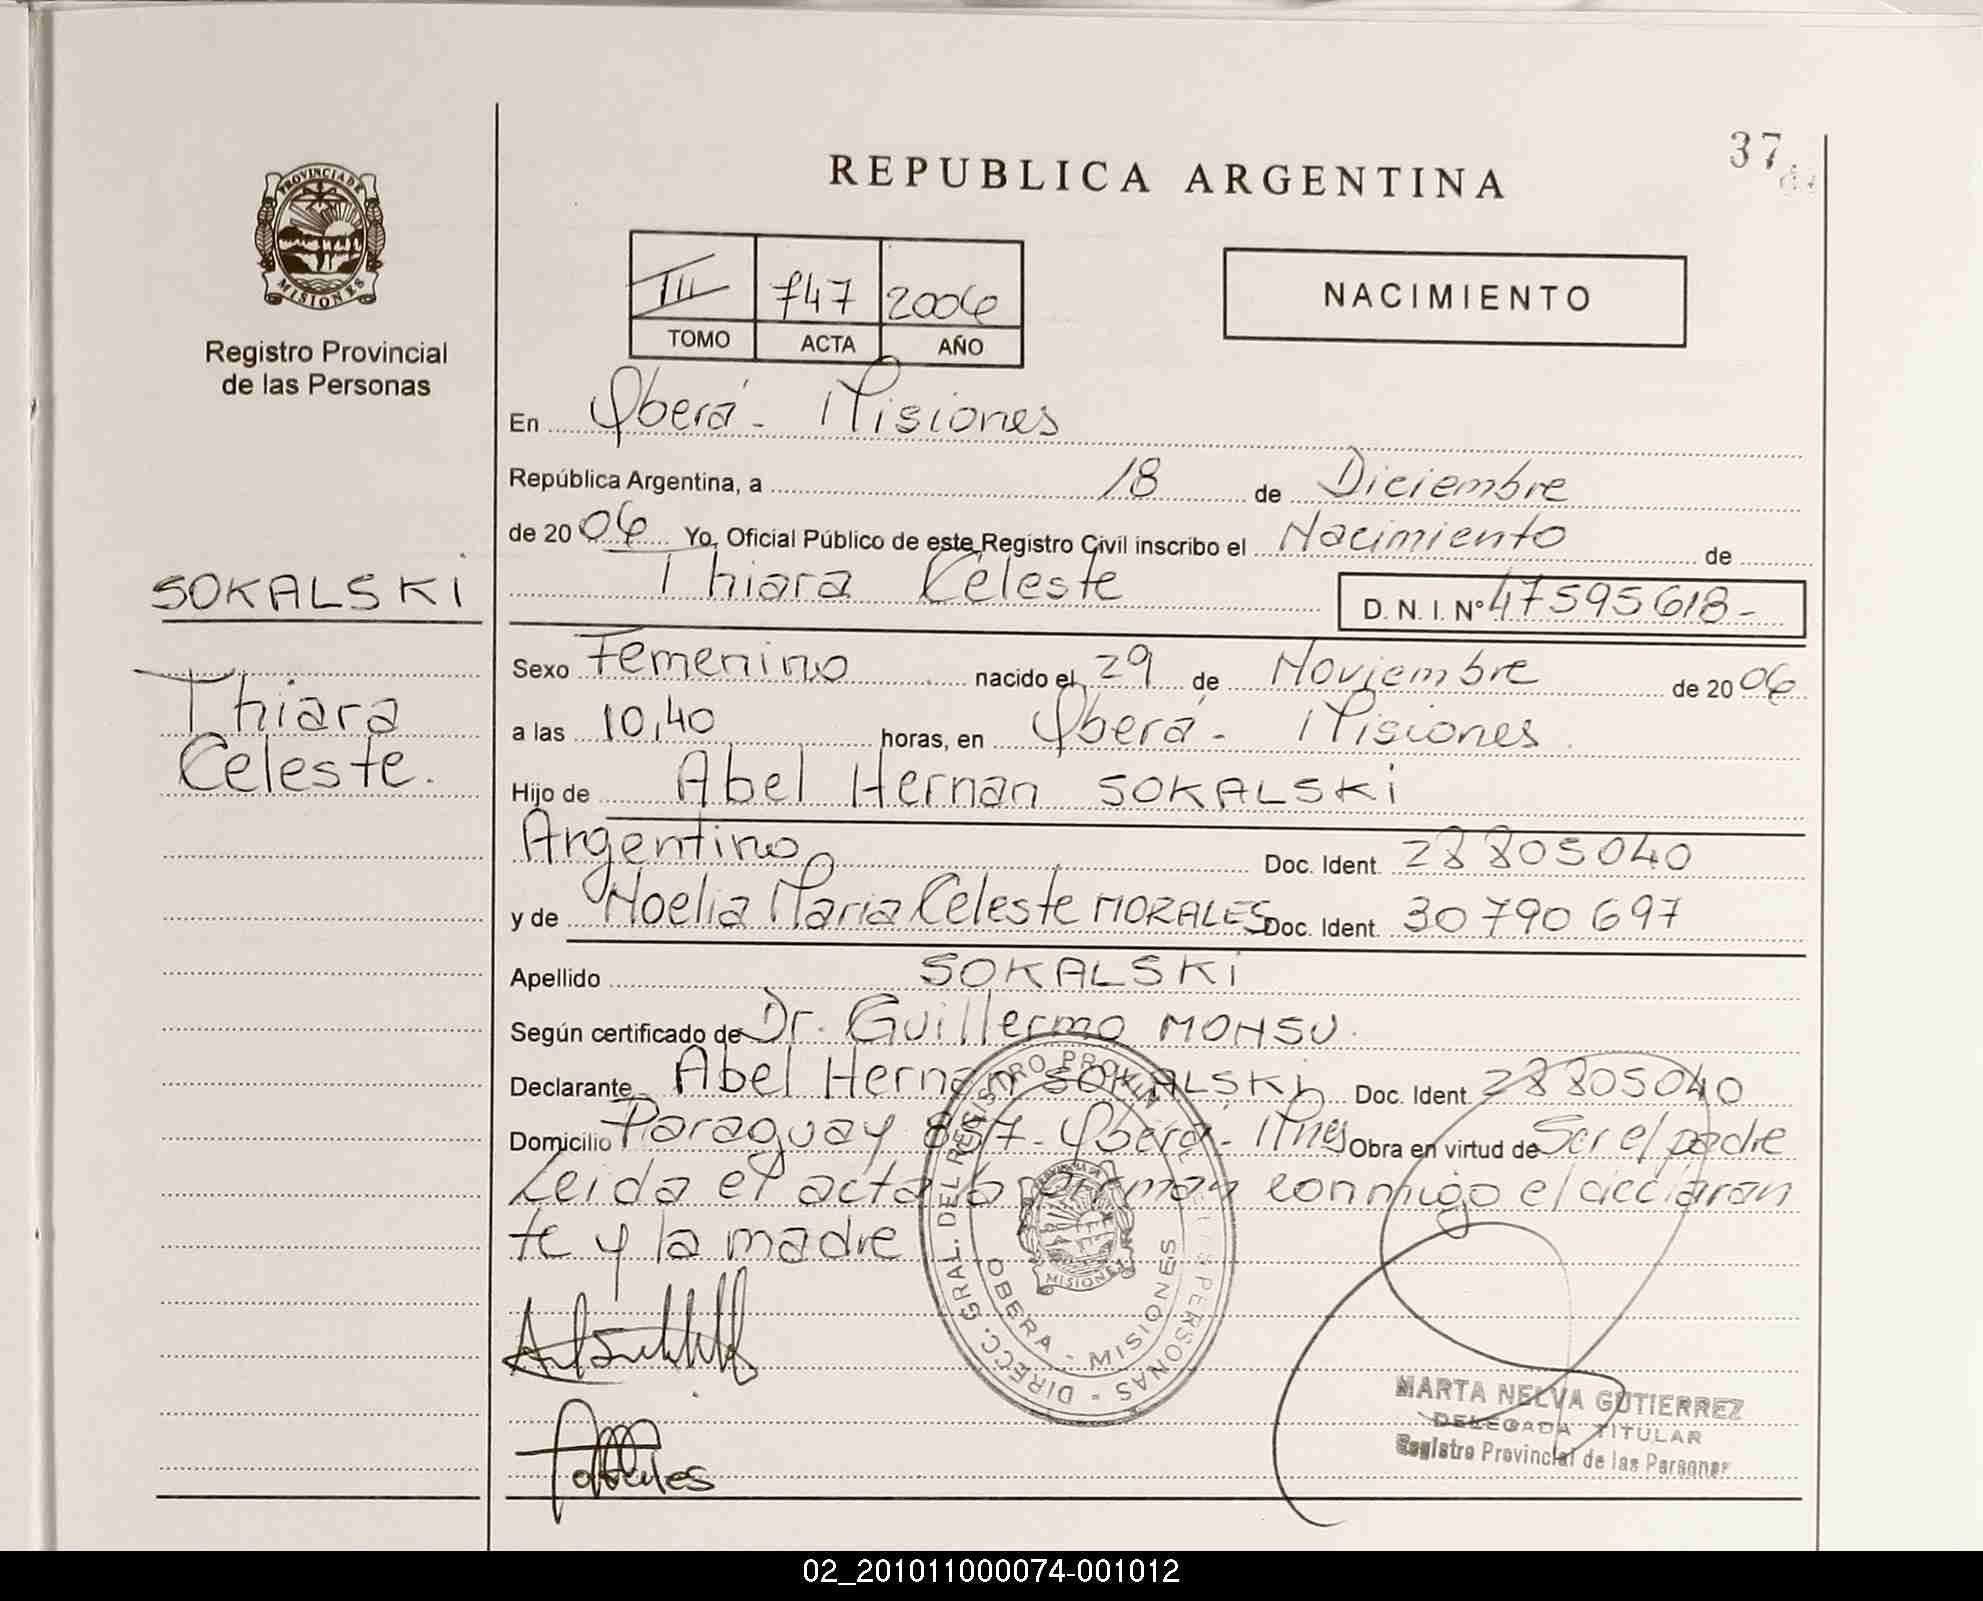 37
REPUBLICA ARGENTINA
PROVINCIA DE
MISIONES
Registro Provincial
de las Personas
III 747 2006
TOMO ACTA AÑO
NACIMIENTO
En Oberá - Misiones
República Argentina, a 18 de Diciembre
de 2006 Yo, Oficial Público de este Registro Civil inscribo el Nacimiento de
Thiara Celeste D. N. I. Nº 47595618-
SOKALSKI
Thiara
Celeste.
Sexo Femenino nacido el 29 de Noviembre de 2006
a las 10,40 horas, en Oberá - Misiones
Hijo de Abel Hernan SOKALSKI
Argentino Doc. Ident. 28805040
y de Noelia Maria Celeste MORALES Doc. Ident. 30790697
Apellido SOKALSKI
Según certificado de Dr. Guillermo MONSU.
Declarante Abel Hernan SOKALSKI Doc. Ident. 28805040
Domicilio Paraguay 857 - Oberá - Mnes Obra en virtud de Ser el padre
Leida el acta la firman conmigo el declaran
te y la madre
DIRECC. GRAL. DEL REGISTRO PERSONAS
OBERA - MISIONES
MISIONES
MARTA NELVA GUTIERREZ
DELEGADA TITULAR
Registro Provincial de las Personas
02_201011000074-001012